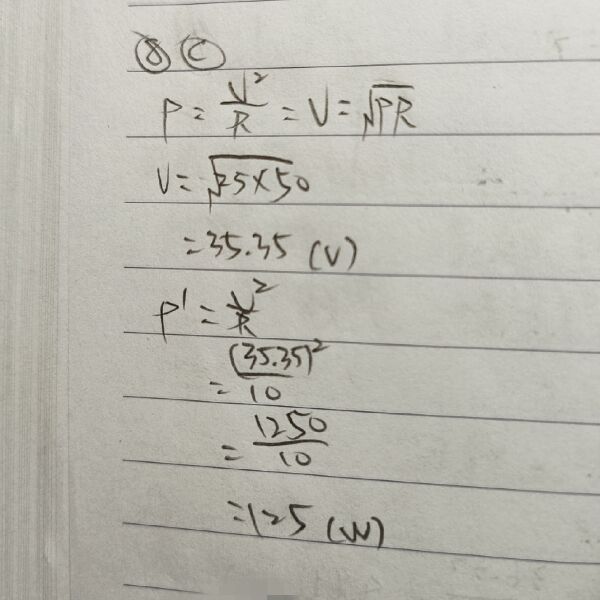 ⑧ Ⓒ
P = V²/R = V = √PR
V = √25×50
= 35.35 (V)
P' = V²/R
= (35.35)²/10
= 1250/10
= 125 (W)